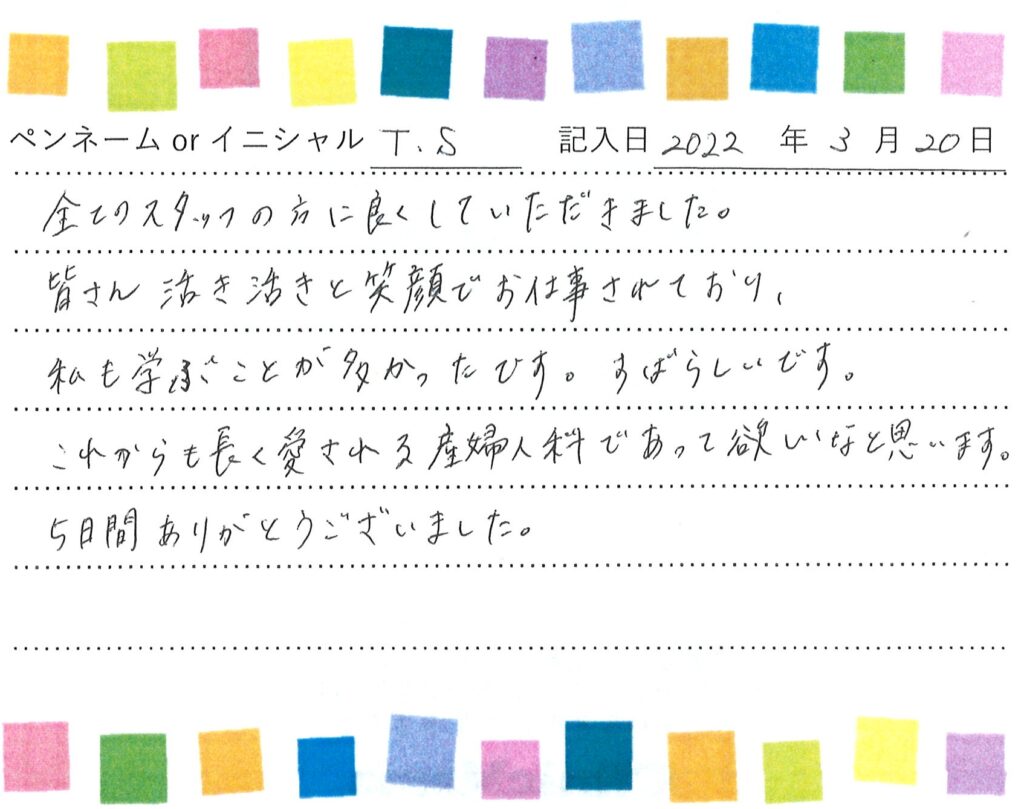 ペンネーム or イニシャル T.S 記入日 2022 年 3 月 20 日
全てのスタッフの方に良くしていただきました。
皆さん 活き活きと笑顔でお仕事されており、
私も学ぶことが多かったです。すばらしいです。
これからも長く愛される産婦人科であって欲しいなと思います。
5日間ありがとうございました。